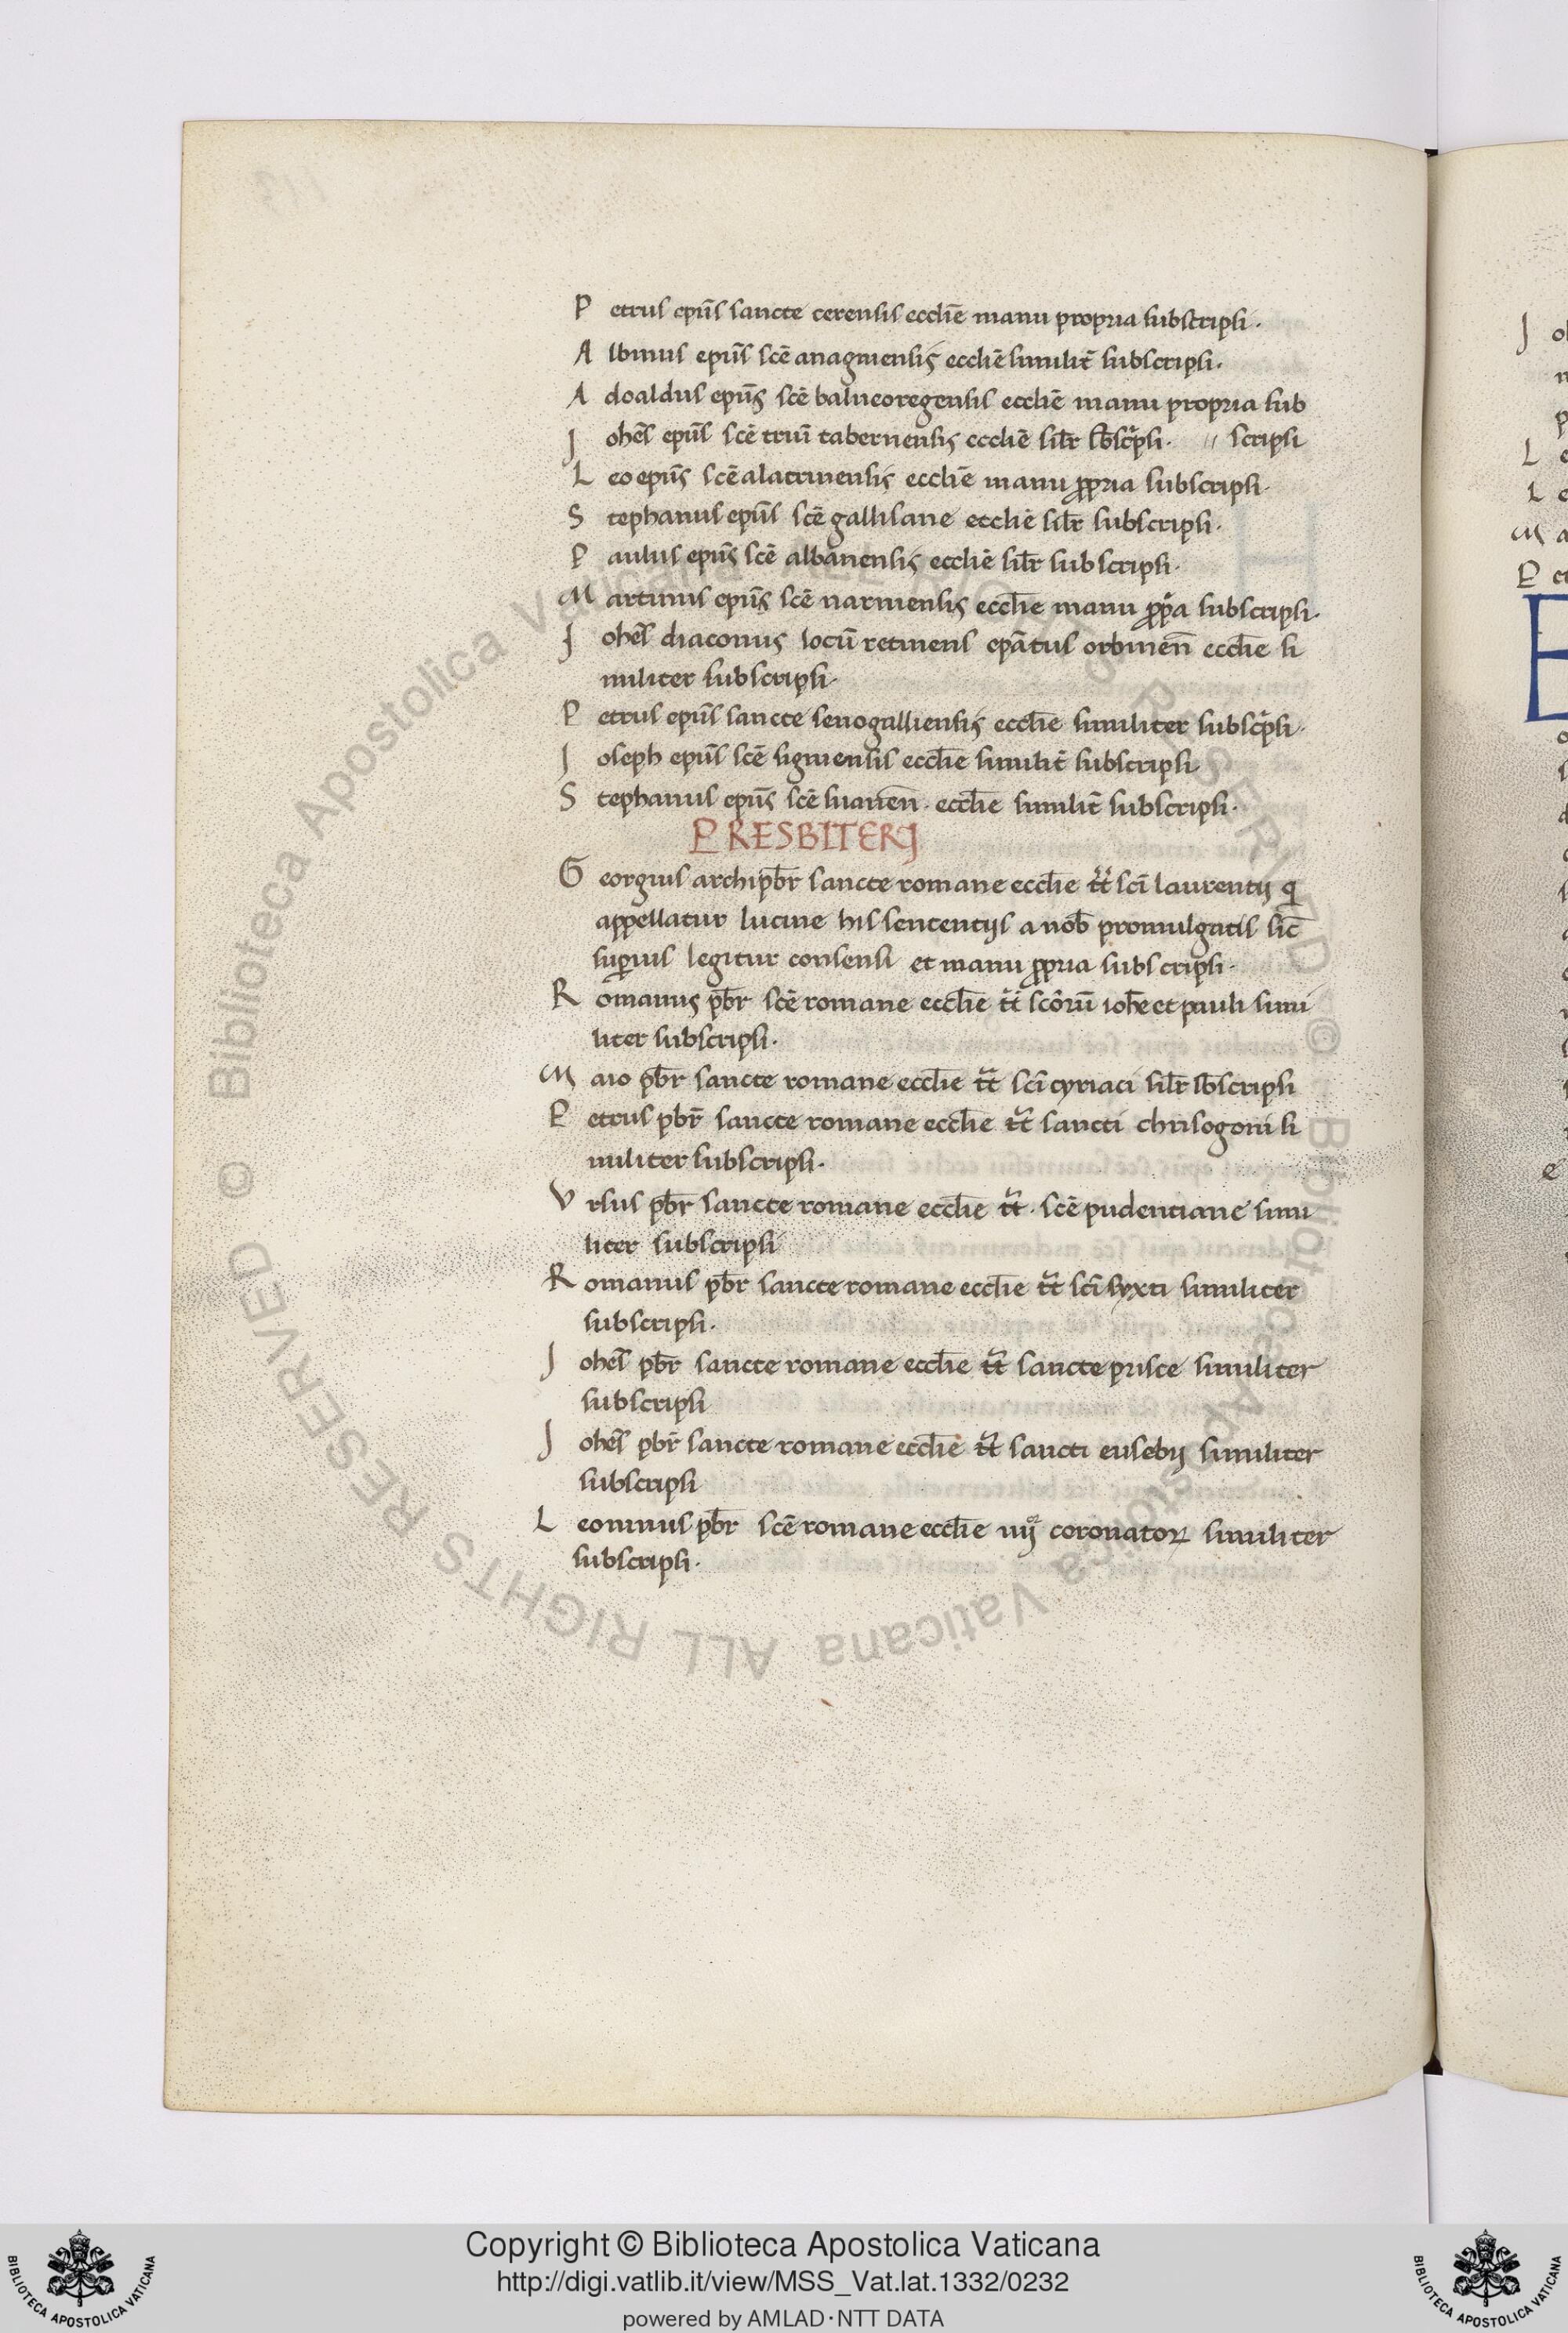 Petrus ep̄us sancte cerensis eccliē manu propria subscripsi.
Albinus ep̄us scē anagniensis eccliē similit̄ subscripsi.
Adoaldus ep̄us scē balneoregensis eccliē manu propria sub
Joh̄es ep̄us scē triū tabernensis eccliē sil̄r sb̄scͥpsi. // scripsi
Leo ep̄us scē alatrinensis eccliē manu ꝓpria subscripsi.
Stephanus ep̄us scē gallisane eccliē sil̄r subscripsi.
Paulus ep̄us scē albanensis eccliē sil̄r subscripsi.
Martinus ep̄us scē narniensis eccl̄ie manu ꝓpͥa subscripsi.
Joh̄es diaconus locū retinens epātus orbinen̄ eccl̄ie si
militer subscripsi.
Petrus ep̄us sancte senogalliensis eccl̄ie similiter subscͥpsi.
Joseph ep̄us scē signensis eccl̄ie similit̄ subscripsi
Stephanus ep̄us scē suanen̄. eccl̄ie similit̄ subscripsi.
PRESBITERJ
Georgius archipb̄r sancte romane eccl̄ie tt̄ scī laurentij qͥ
appellatur lucine his sententijs a nob̄ promulgatis sic̄
suꝑius legitur consensi et manu ꝓpria subscripsi.
Romanus pb̄r scē romane eccl̄ie tt̄ scōrū ioh̄e et pauli simi
liter subscripsi.
Maio pb̄r sancte romane eccl̄ie tt̄ scī cyriaci sil̄r sb̄scripsi
Petrus pbr̄ sancte romane eccl̄ie tt̄ sancti chrisogoni si
militer subscripsi.
Vrsus pb̄r sancte romane eccl̄ie tt̄. scē pudentiane simi
liter subscripsi
Romanus pb̄r sancte romane eccl̄ie tt̄ scī syxti similiter
subscripsi.
Joh̄es pb̄r sancte romane eccl̄ie tt̄ sancte prisce similiter
subscripsi
Joh̄es pbr̄ sancte romane eccl̄ie tt̄ sancti eusebij similiter
subscripsi
Leoninus pb̄r scē romane eccl̄ie iiij coronatoꝝ similiter
subscripsi.
© Biblioteca Apostolica Vaticana ALL RIGHTS RESERVED © Biblioteca Apostolica Vaticana ALL RIGHTS RESERVED
Copyright © Biblioteca Apostolica Vaticana
http://digi.vatlib.it/view/MSS_Vat.lat.1332/0232
powered by AMLAD·NTT DATA
BIBLIOTECA APOSTOLICA VATICANA
BIBLIOTECA APOSTOLICA VATICANA